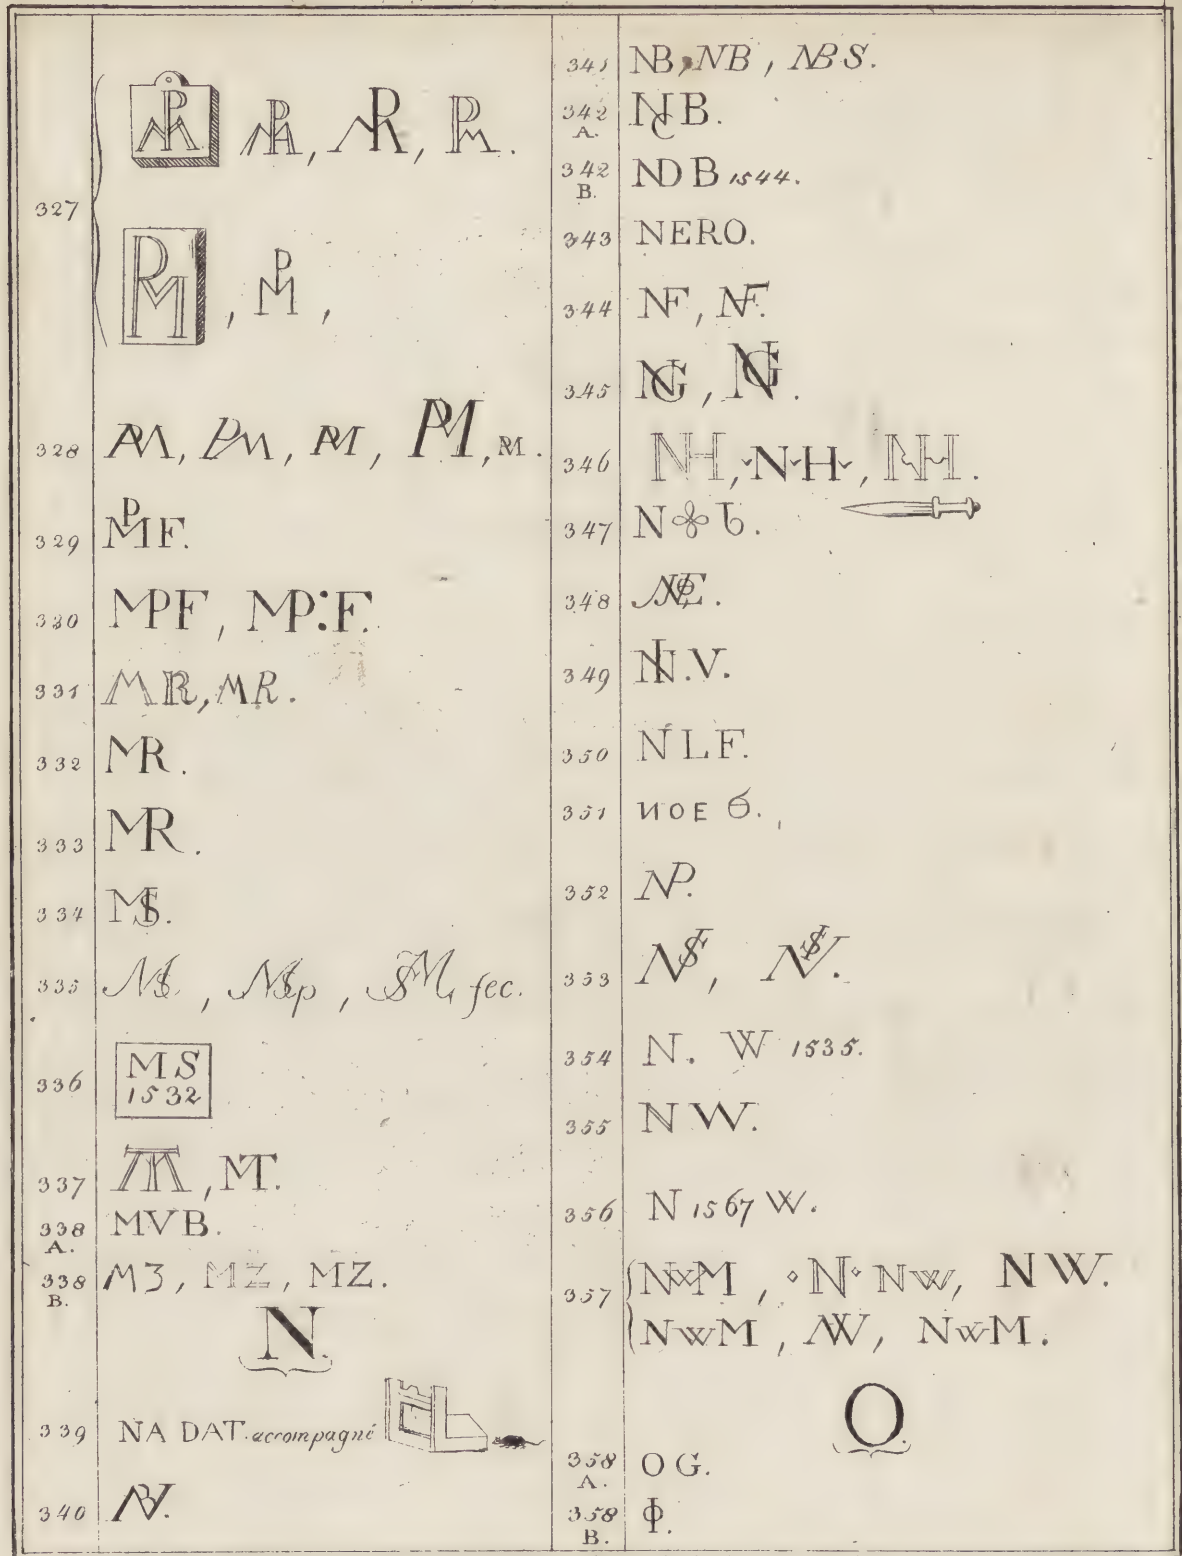 327
328 PM, PM, PM, PM, PM.
329 MPF.
330 MPF, MP:F.
331 MR, MR.
332 MR.
333 MR.
334
335 fec.
336 MS
1532
337 MT.
338 A. MVB.
338 B. M3, MZ, MZ.
N.
339 NA DAT. accompagné
340
341 NB, NB, NBS.
342 A. NCB.
342 B. NDB 1544.
343 NERO.
344 NF, NF.
345 NG, NG.
346 NH, N·H, NH.
347
348
349 V.
350 NLF.
351 ИOE 6.
352 NP.
353
354 N. W 1535.
355 NW.
356 N 1567 W.
357 NWM, N NW, NW.
NWM, NW, NWM.
O.
358 A. OG.
358 B. Φ.